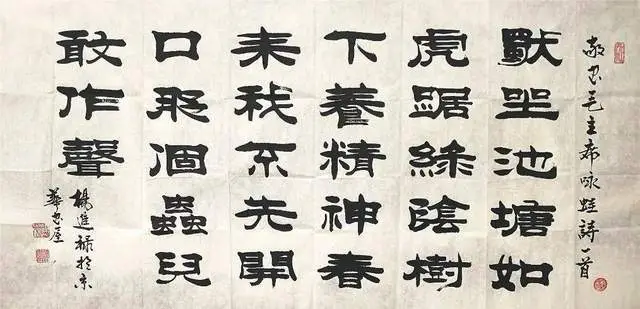 敬書毛主席咏蛙詩一首
坐池塘如
虎踞綠陰樹
下養精神春
来我不先開
口那個蟲兒
敢作聲
楊進禄於京
華